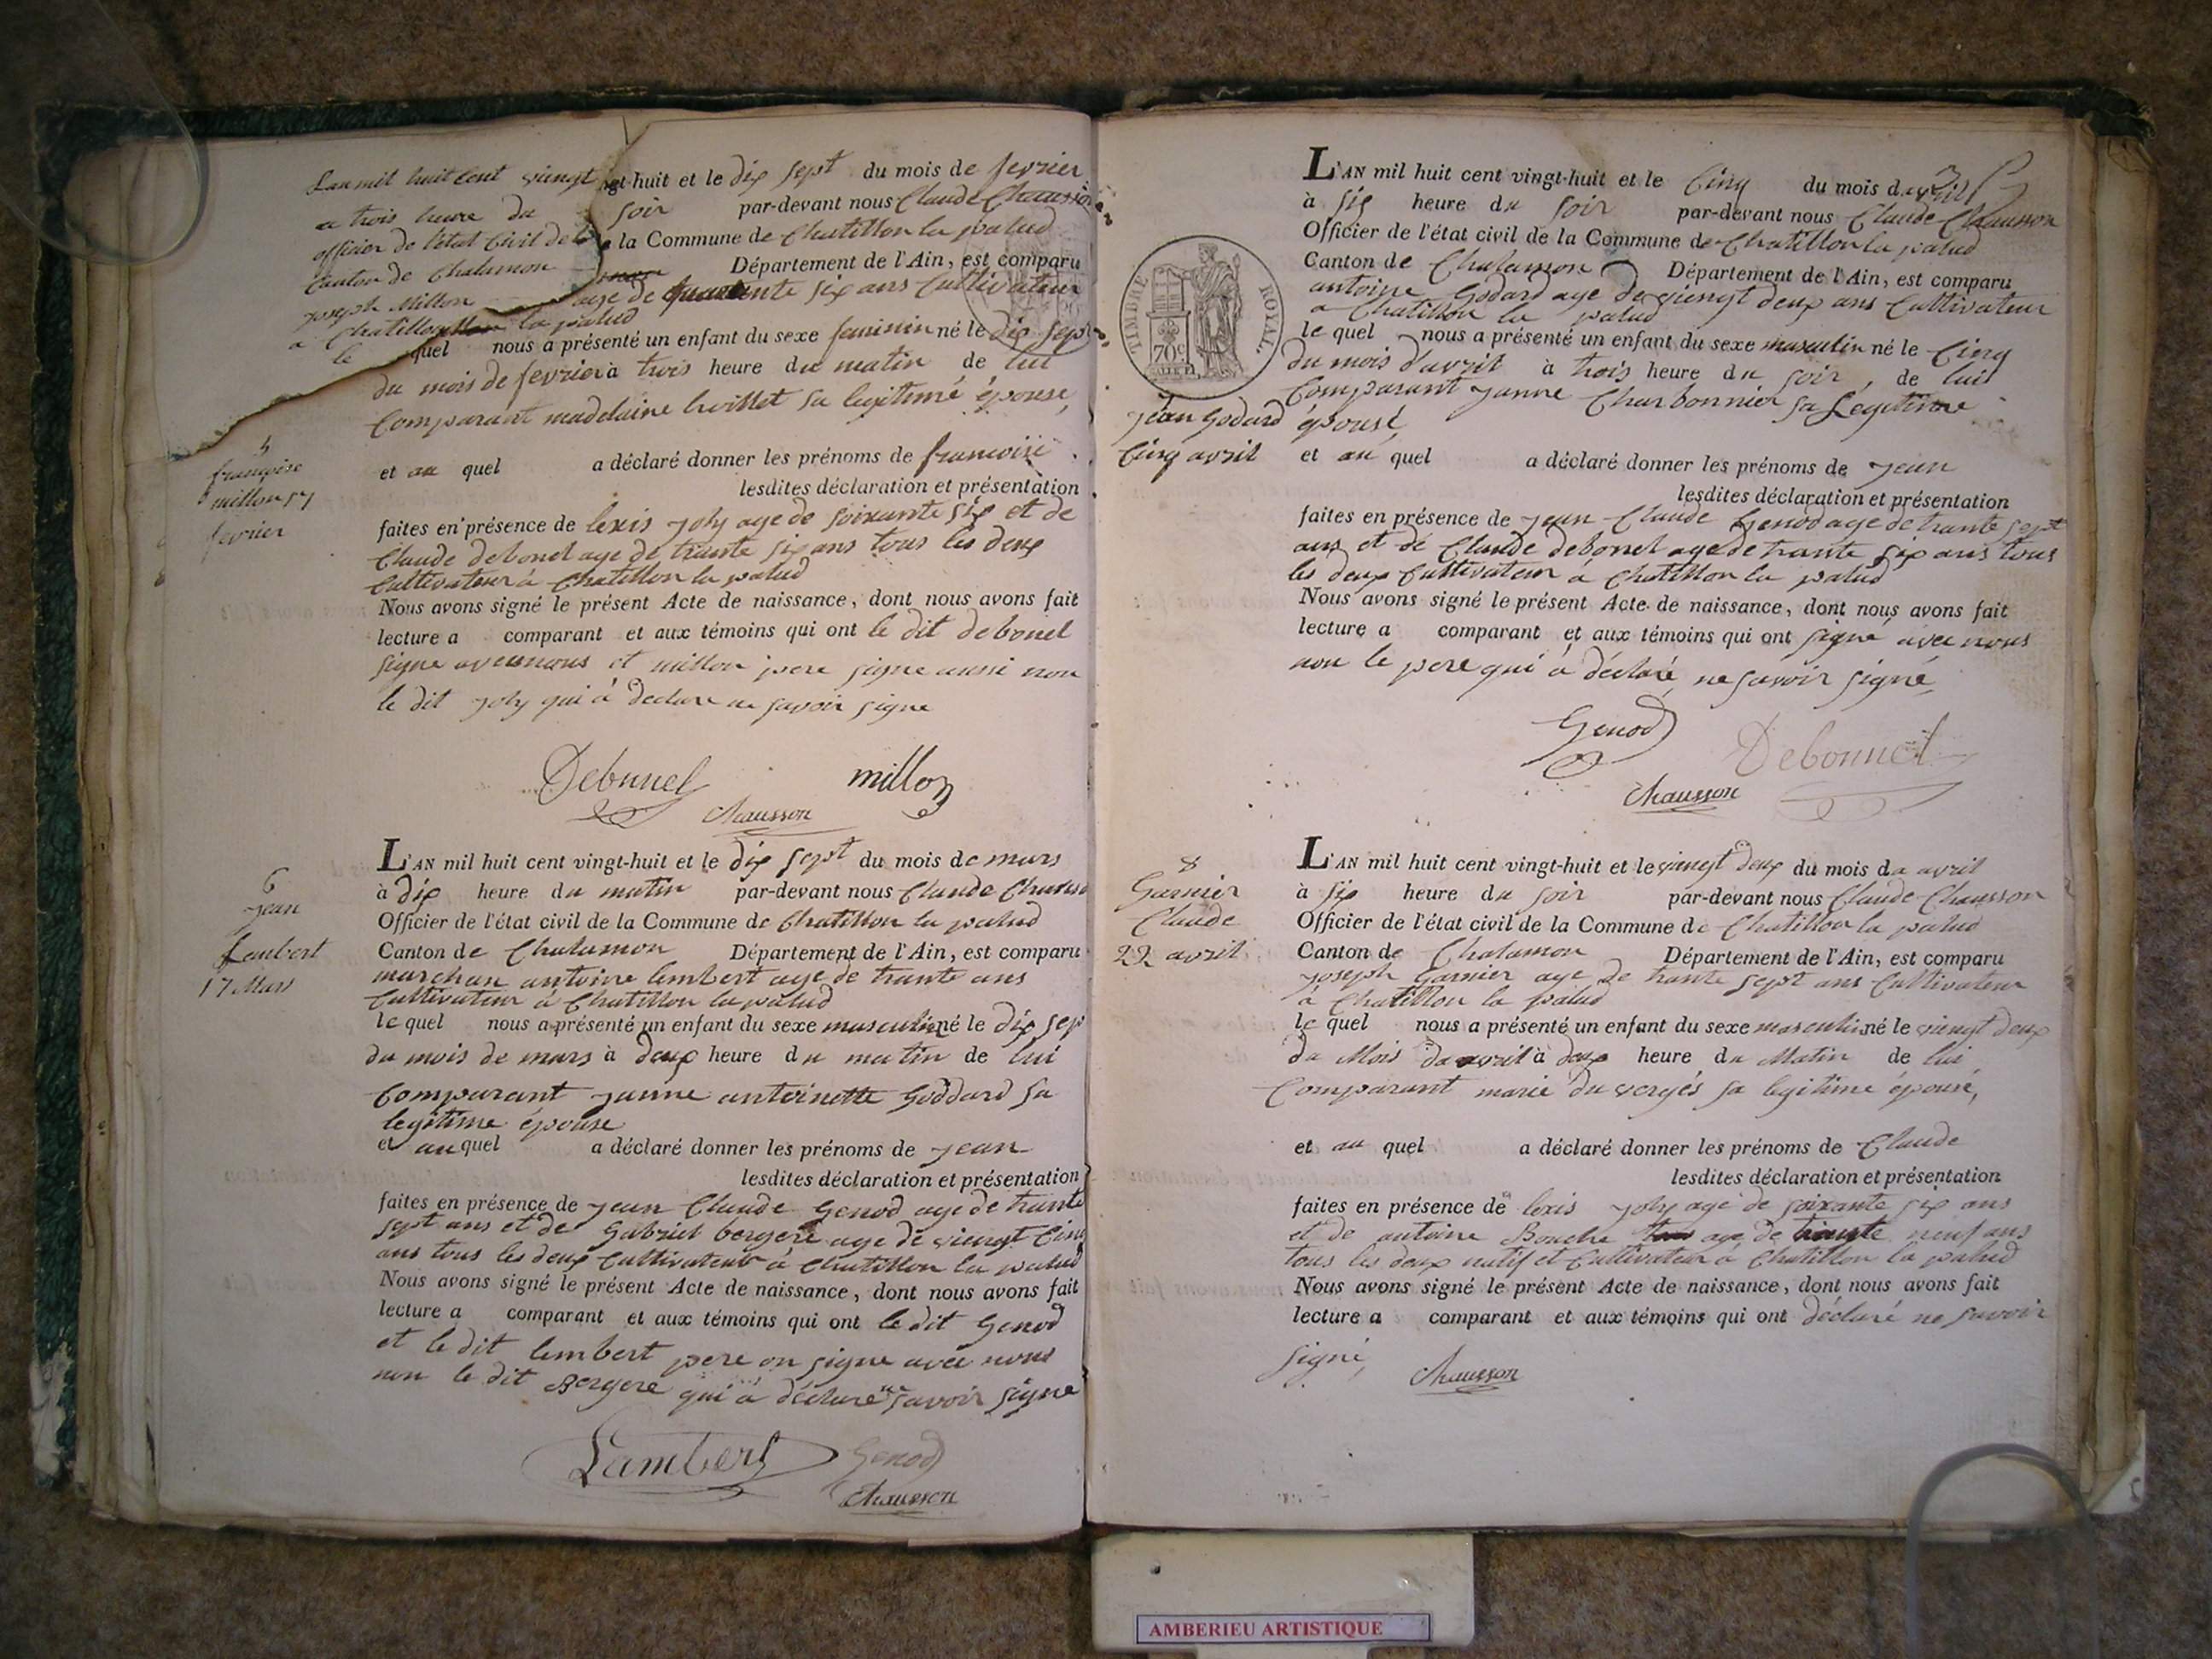 Lan mil huit Cent viengt ngt-huit et le dix sept du mois de fevrier
a trois heure du soir par-devant nous Claude Chausson
officier de létat Civil de la Commune de Chatillon la palud
Canton de Chalamon Département de l'Ain, est comparu
joseph Millon age de quarante six ans Cultivateur
a Chatillon la palud
le quel nous a présenté un enfant du sexe feminin né le dix sept
du mois de fevrier à trois heure du matin de lui
Comparant madelaine sa legitime épouse,
5
françoise
millon 17
fevrier
et au quel a déclaré donner les prénoms de francoise
lesdites déclaration et présentation
faites en présence de lexis joly age de soixante six et de
Claude debonel age de trante six ans tous les deux
Cultivateur à Chatillon la palud
Nous avons signé le présent Acte de naissance, dont nous avons fait
lecture a comparant et aux témoins qui ont le dit debonel
signe avec nous et millon pere signe aussi non
le dit joly qui à declare ne savoir signe
Debonnel millon
Chausson
6
jean
Lambert
17 Mars
L'AN mil huit cent vingt-huit et le dix sept du mois de mars
à dix heure du matin par-devant nous Claude Chausson
Officier de l'état civil de la Commune de Chatillon la palud
Canton de Chalamon Département de l'Ain, est comparu
marchan antoine lembert age de trante ans
Cultivateur à Chatillon la palud
le quel nous a présenté un enfant du sexe masculin né le dix sep
du mois de mars à deux heure du matin de lui
Comparant janne antoinette Goddard sa
legitime épouse
et au quel a déclaré donner les prénoms de jean
lesdites déclaration et présentation
faites en présence de jean Claude Genod age de trante
sept ans et de Gabriel bergere age de viengt Cinq
ans tous les deux Cultivateur à Chatillon la palud
Nous avons signé le présent Acte de naissance, dont nous avons fait
lecture a comparant et aux témoins qui ont le dit Genod
et le dit lembert pere on signe avec nous
non le dit Bergere qui à déclare ne savoir signe
Lambert Genod
Chausson
L'AN mil huit cent vingt-huit et le Cinq du mois d avril
à six heure du soir par-devant nous Claude Chausson
Officier de l'état civil de la Commune de Chatillon la palud
Canton de Chalamon Département de l'Ain, est comparu
antoine Godard age de viengt deux ans Cultivateur
a Chatillon la palud
TIMBRE ROYAL.
70c
le quel nous a présenté un enfant du sexe masculin né le Cinq
du mois d'avril à trois heure du soir, de lui
Comparant janne Charbonnier sa Legitime
épouse,
jean Godard
Cinq avril
et au quel a déclaré donner les prénoms de jean
lesdites déclaration et présentation
faites en présence de jean Claude Genod age de trante sept
ans et de Claude debonel age de trante six ans tous
les deux Cultivateur à Chatillon la palud
Nous avons signé le présent Acte de naissance, dont nous avons fait
lecture a comparant et aux témoins qui ont signé avec nous
non le pere qui à déclaré ne savoir signé,
Genod Debonnel
Chausson
8
Garnier
Claude
22 avril
L'AN mil huit cent vingt-huit et le viengt deux du mois da avril
à six heure du soir par-devant nous Claude Chausson
Officier de l'état civil de la Commune de Chatillon la palud
Canton de Chalamon Département de l'Ain, est comparu
joseph Garnier age de trante sept ans Cultivateur
a Chatillon la palud
le quel nous a présenté un enfant du sexe masculin né le viengt deux
du Mois da avril à deux heure du Matin de lui
Comparant marie du vergés sa legitime épouse,
et au quel a déclaré donner les prénoms de Claude
lesdites déclaration et présentation
faites en présence de lexis joly agé de soixante six ans
et de antoine Bouche age de trante neuf ans
tous les deux natif et Cultivateur à Chatillon la palud
Nous avons signé le présent Acte de naissance, dont nous avons fait
lecture a comparant et aux témoins qui ont déclaré ne savoir
signé,
Chausson
AMBERIEU ARTISTIQUE